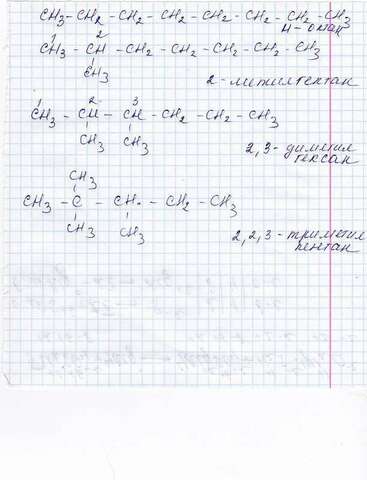 CH3-CH2-CH2-CH2-CH2-CH2-CH2-CH3
н-октан
1 2
CH3-CH-CH2-CH2-CH2-CH2-CH3
CH3
2-метилгептан
1 2 3
CH3-CH-CH-CH2-CH2-CH3
CH3 CH3
2,3-диметил
гексан
CH3
CH3-C-CH-CH2-CH3
CH3 CH3
2,2,3-триметил
пентан